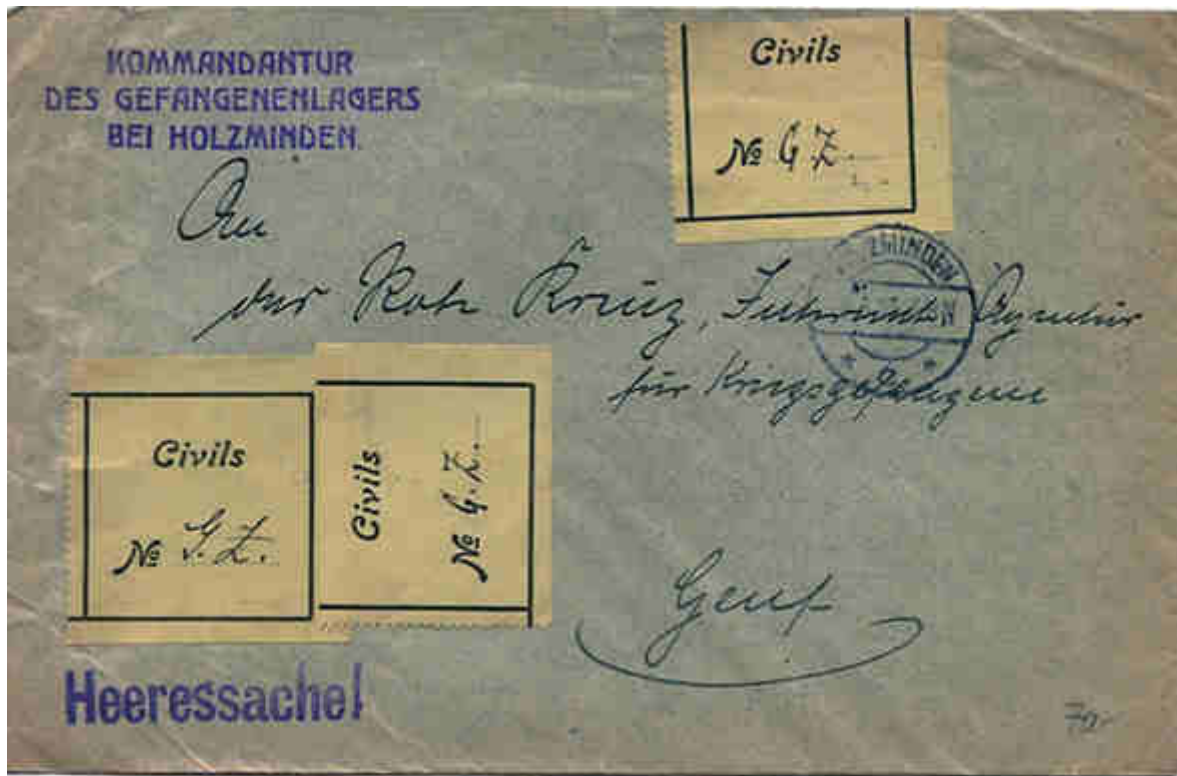 KOMMANDANTUR
DES GEFANGENENLAGERS
BEI HOLZMINDEN.
Civils
№ G. Z.
An
das Rote Kreuz, Agentur
für Kriegsgefangene
ZMINDEN
Civils
№ G. Z.
Civils
№ G. Z.
Genf
Heeressache!